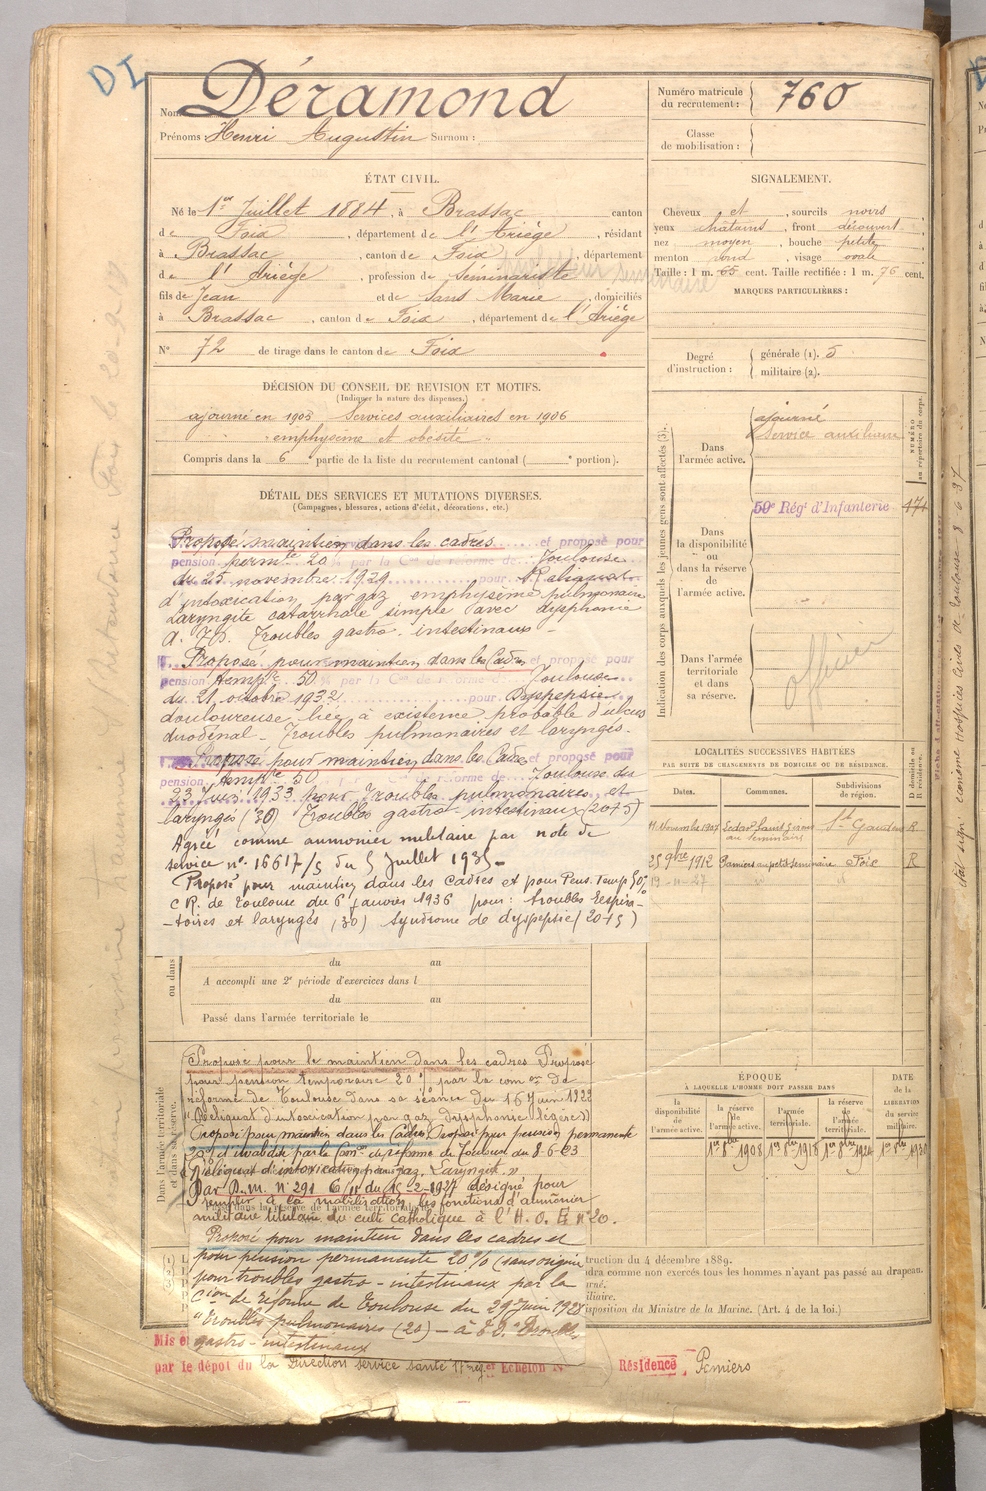 DI
Nom Déramond
Prénoms : Henri Augustin Surnom :
Numéro matricule du recrutement : 760
Classe de mobilisation :
ÉTAT CIVIL.
Né le 1er Juillet 1884, à Brassac canton
de Foix, département de l'Ariège, résidant
à Brassac, canton de Foix, département
de l'Ariège, profession de Séminariste
fils de Jean et de Sans Marie, domiciliés
à Brassac, canton de Foix, département de l'Ariège
N° 72 de tirage dans le canton de Foix
SIGNALEMENT.
Cheveux et, sourcils noirs
yeux chatains, front découvert
nez moyen, bouche petite
menton rond, visage ovale
Taille : 1 m. 65 cent. Taille rectifiée : 1 m. 76 cent.
MARQUES PARTICULIÈRES :
Degré d'instruction : générale (1). 5
militaire (2).
DÉCISION DU CONSEIL DE REVISION ET MOTIFS.
(Indiquer la nature des dispenses.)
ajourné en 1905 Services auxiliaires en 1906
emphysème et obésité
Compris dans la 6e partie de la liste du recrutement cantonal ( e portion).
DÉTAIL DES SERVICES ET MUTATIONS DIVERSES.
(Campagnes, blessures, actions d'éclat, décorations, etc.)
Proposé maintien dans les cadres et proposé pour
pension permte 20 % par la Con de réforme de Toulouse
du 25 novembre 1929 pour Reliquats
d'intoxication par gaz emphysème pulmonaire
Laryngite catarrhale simple avec dysphonie
Troubles gastro-intestinaux
Proposé pour maintien dans les Cadres et proposé pour
pension tempre 50 % par la Con de réforme de Toulouse
du 21 octobre 1932 pour Dyspepsie
douloureuse liée à existence probable d'ulcus
duodénal - Troubles pulmonaires et laryngés.
Proposé pour maintien dans les Cadres et proposé pour
pension tempre 50 Con de réforme de Toulouse du
23 1933 pour Troubles pulmonaires et
laryngés (30) Troubles gastro-intestinaux (20+5)
Agréé comme aumonier militaire par note de
service n° 16617/5 du 5 Juillet 1935-
Proposé pour maintien dans les Cadres et pour Pens. Temp 50%
C R. de Toulouse du 6 janvier 1936 pour : troubles respira-
-toires et laryngés (30) Syndrome de dyspepsie (20+5)
ou dans
du au
A accompli une 2e période d'exercices dans l
du au
Passé dans l'armée territoriale le
Dans l'armée territoriale et dans sa réserve.
Proposé pour le maintien dans les cadres Proposé
pour pension temporaire 20 % par la con on de
réforme de Toulouse dans sa séance du 16 Juin 1922
"Reliquat d'intoxication par gaz, dysphonie légère"
Proposé pour maintien dans les Cadres Proposé pour pension permanente
20% d'invalidité par la Con de réforme de Toulouse du 8-6-23
"reliquat d'intoxication par gaz, Laryngite"
Par D.M. N° 291 du 15-2-1927 désigné pour
remplir à la mobilisation les fonctions d'aumônier
militaire titulaire du culte Catholique à l'H.O.E. n° 20.
Proposé pour maintien dans les cadres et
pour pension permanente 20% (sans origine
pour troubles gastro-intestinaux par la
Cion de réforme de Toulouse du 29 Juin 1928
"Troubles pulmonaires (20) - Troubles
gastro-intestinaux
Mis e
par le dépôt du la Direction service santé 17e rég er Echelon N
Résidence Pamiers
Indication des corps auxquels les jeunes gens sont affectés (3).
NUMÉRO au répertoire du corps.
Dans l'armée active.
ajourné
Service auxiliaire
Dans la disponibilité ou dans la réserve de l'armée active.
59e Régt d'Infanterie 171
Dans l'armée territoriale et dans sa réserve.
officier
LOCALITÉS SUCCESSIVES HABITÉES
PAR SUITE DE CHANGEMENTS DE DOMICILE OU DE RÉSIDENCE.
Dates. Communes. Subdivisions de région. D domicile ou R résidence.
11 Novembre 1907 au séminaire St Gaudens R
25 9bre 1912 Pamiers au petit séminaire Foix R
19-11-27
ÉPOQUE
À LAQUELLE L'HOMME DOIT PASSER DANS
DATE de la LIBÉRATION du service militaire.
la disponibilité de l'armée active.
la réserve de l'armée active.
l'armée territoriale.
la réserve de l'armée territoriale.
1er 8bre 1908
truction du 4 décembre 1889.
dra comme non exercés tous les hommes n'ayant pas passé au drapeau.
rné.
iliaire.
isposition du Ministre de la Marine. (Art. 4 de la loi.)